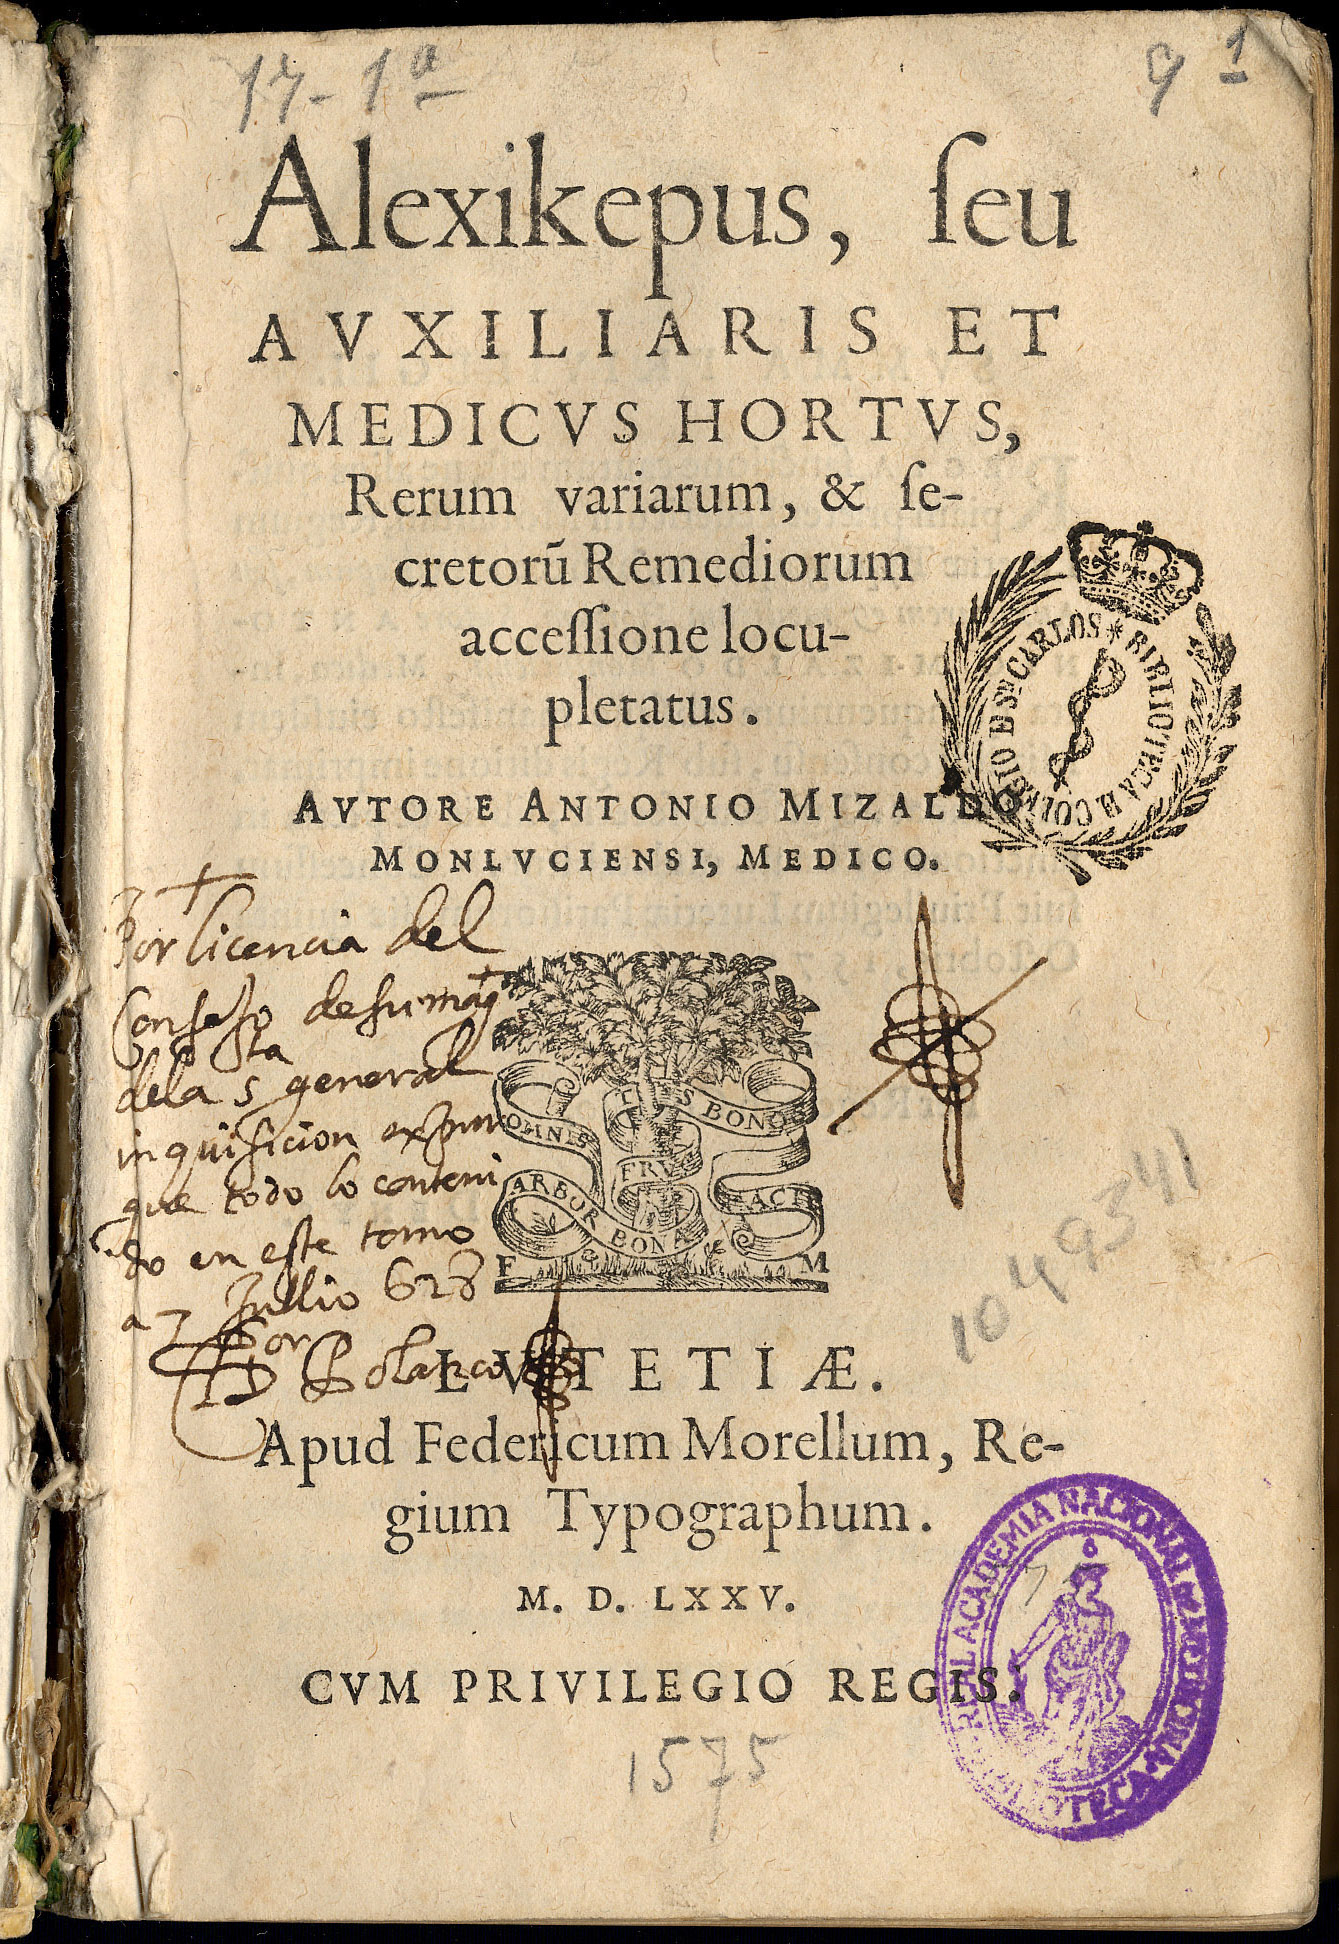 17 - 1ª
9 1
Alexikepus, ſeu
AVXILIARIS ET
MEDICVS HORTVS,
Rerum variarum, & ſe-
cretorũ Remediorum
acceſſione locu-
pletatus.
AVTORE ANTONIO MIZALDO
MONLVCIENSI, MEDICO.
BIBLIOTECA DEL COLEGIO DE Sⁿ CARLOS *
Por licencia del
Consejo de su mag
de la sta general
inquisicion expur
gue todo lo conteni
do en este tomo
a 7 Jullio 628
Por
Polanco
OMNIS
ARBOR BONA
FRVCTVS BONOS
FACIT
F M
10 49534 1
LVTETIÆ.
Apud Federicum Morellum, Re-
gium Typographum.
M. D. LXXV.
CVM PRIVILEGIO REGIS.
REAL ACADEMIA NACIONAL DE MEDICINA
BIBLIOTECA
1575